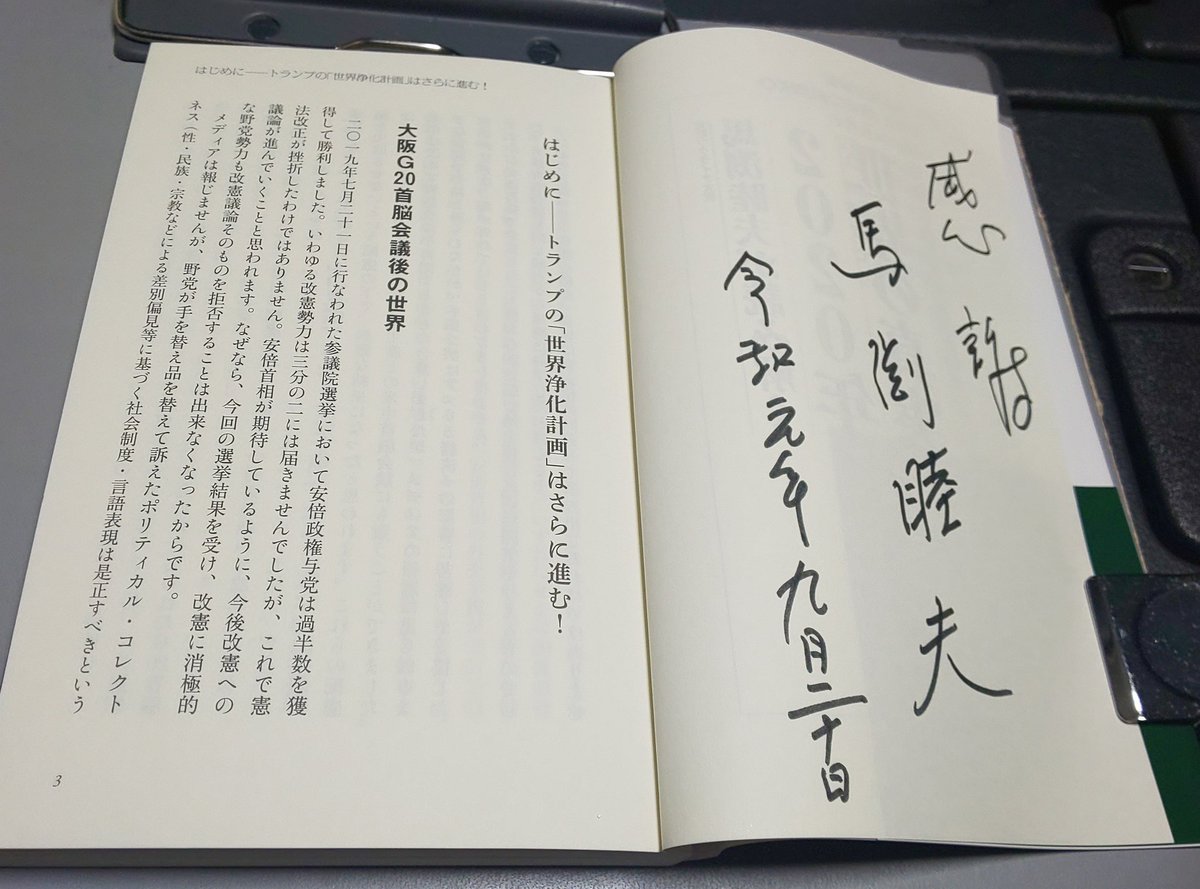 感謝
馬渕睦夫
令和元年九月二十日
はじめに――トランプの「世界浄化計画」はさらに進む！
はじめに――トランプの「世界浄化計画」はさらに進む！
大阪G20首脳会議後の世界
二〇一九年七月二十一日に行なわれた参議院選挙において安倍政権与党は過半数を獲
得して勝利しました。いわゆる改憲勢力は三分の二には届きませんでしたが、これで憲
法改正が挫折したわけではありません。安倍首相が期待しているように、今後改憲への
議論が進んでいくことと思われます。なぜなら、今回の選挙結果を受け、改憲に消極的
な野党勢力も改憲議論そのものを拒否することは出来なくなったからです。
メディアは報じませんが、野党が手を替え品を替えて訴えたポリティカル・コレクト
ネス（性・民族・宗教などによる差別偏見等に基づく社会制度・言語表現は是正すべきという
3